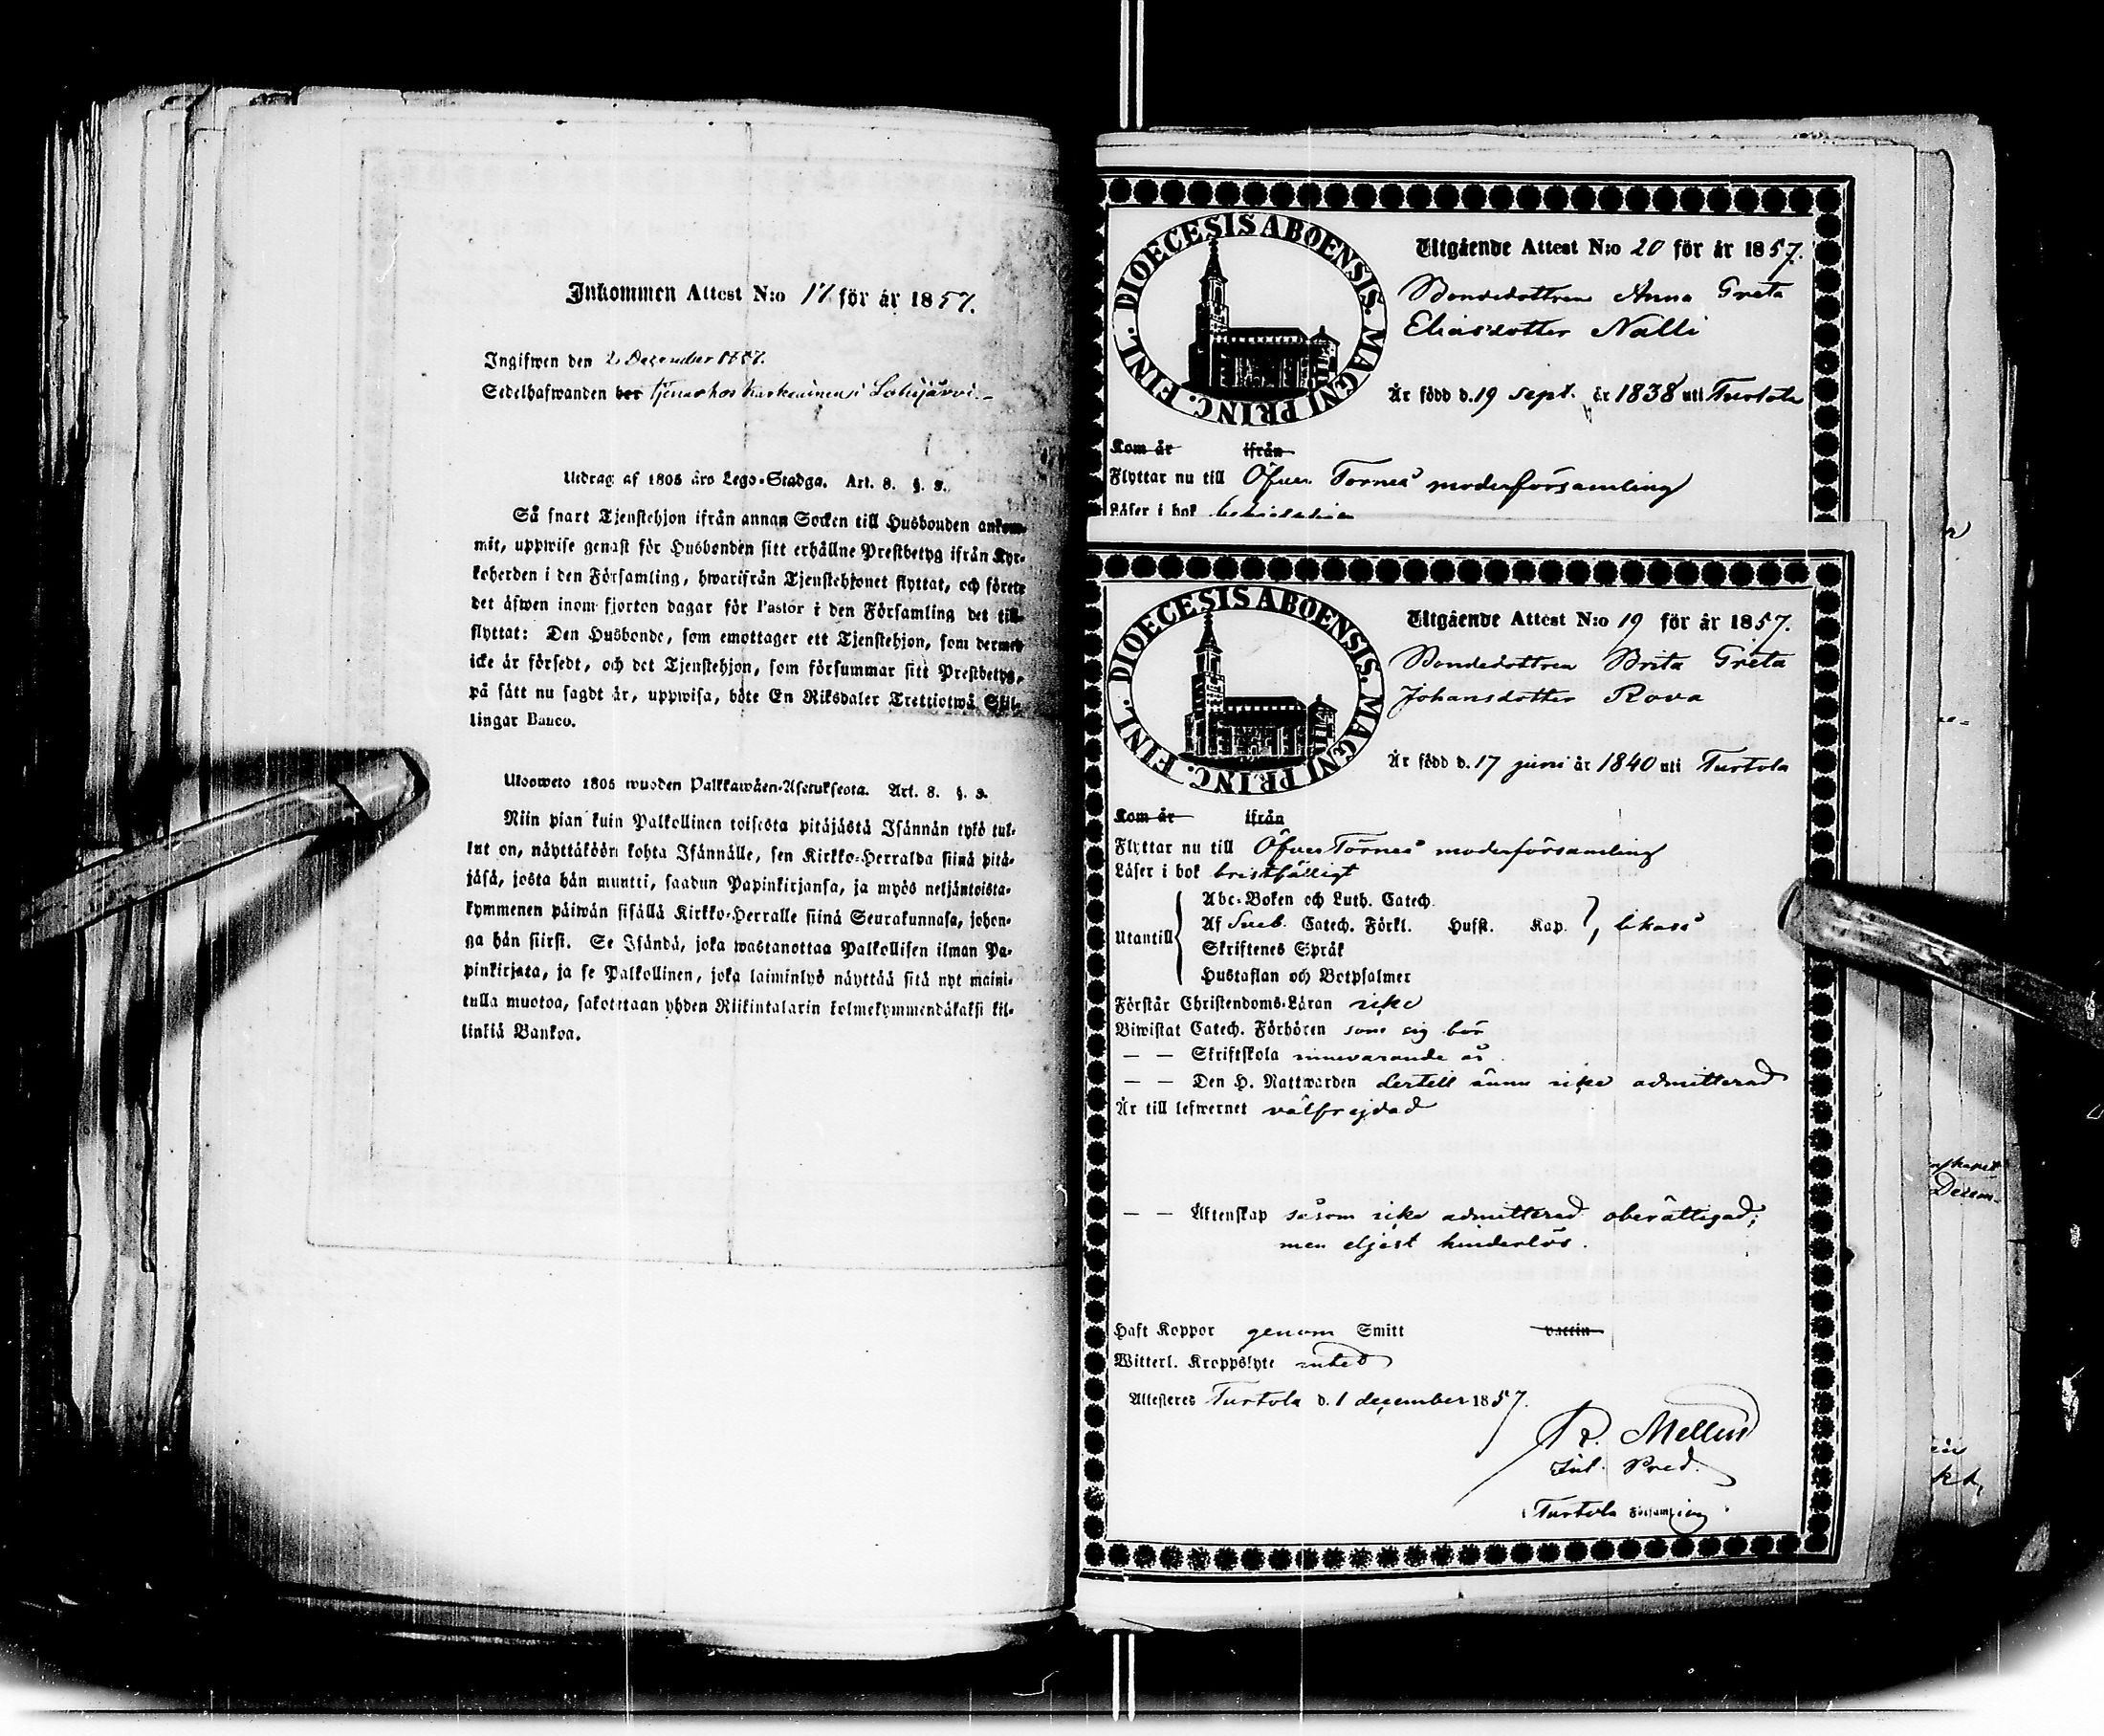 Inkommen Attest N:o 17 för år 1857.
Ingifwen den 2 December 1857.
Sedelhafwanden bor tjenar hos Karkeainen i Lohijärvi.
Utdrag af 1805 års Lego-Stadga. Art. 8. §. 3.
Så snart Tjenstehjon ifrån annan Socken till Husbonden ankom-
mit, uppwise genast för Husbonden sitt erhållne Prestbetyg ifrån Kyr-
koherden i den Församling, hwarifrån Tjenstehjonet flyttat, och förete
det äfwen inom fjorton dagar för Pastor i den Församling det till-
flyttat: Den Husbonde, som emottager ett Tjenstehjon, som dermed
icke är försedt, och det Tjenstehjon, som försummar sitt Prestbetyg,
på sätt nu sagdt är, uppwisa, böte En Riksdaler Trettiotwå Skil-
lingar Banco.
Ulosweto 1805 wuoden Palkkawäen-Asetuksesta. Art. 8. §. 3.
Niin pian kuin Palkollinen toisesta pitäjästä Isännän tykö tul-
lut on, näyttäköön kohta Isännälle, sen Kirkko-Herralda siinä pitä-
jäsä, josta hän muutti, saadun Papinkirjansa, ja myös neljäntoista-
kymmenen päiwän sisällä Kirkko-Herralle siinä Seurakunnasa, johon-
ga hän siirst. Se Isändä, joka wastanottaa Palkollisen ilman Pa-
pinkirjata, ja se Palkollinen, joka laiminlyö näyttää sitä nyt maini-
tulla muotoa, sakotetaan yhden Riikintalarin kolmekymmendäkaksi kil-
linkiä Bankoa.
DIOECESIS ABOENSIS. MAGNI PRINC. FINL.
Utgående Attest N:o 20 för år 1857.
Bondedottren Anna Greta
Eliasdotter Nalli
Är född d. 19 sept. år 1838 uti Turtola
Kom år ifrån
Flyttar nu till Öfver Torneå moderförsamling
Läser i bok
DIOECESIS ABOENSIS. MAGNI PRINC. FINL.
Utgående Attest N:o 19 för år 1857.
Bondedottren Brita Greta
Johansdotter Rova
Är född d. 17 juni år 1840 uti Turtola
Kom år ifrån
Flyttar nu till Öfver Torneå moderförsamling
Läser i bok bristfälligt
Utantill
Abc-Boken och Luth. Catech.
Af Sveb. Catech. Förkl. Hufst. Kap.
Skriftenes Språk
Hustaflan och Botpsalmer
Förstår Christendoms-Läran icke
Biwistat Catech. Förhören som sig bör
— — Skriftskola innevarande år
— — Den H. Nattwarden dertill ännu icke admitterad
Är till lefwernet välfrejdad
— — Äktenskap såsom icke admitterad oberättigad;
men eljest hinderlös.
Haft Koppor genom Smitt vaccin
Witterl. Kroppslyte intet
Attesteres Turtola d. 1 december 1857.
R. Mellin
Pred.
Turtola Församling